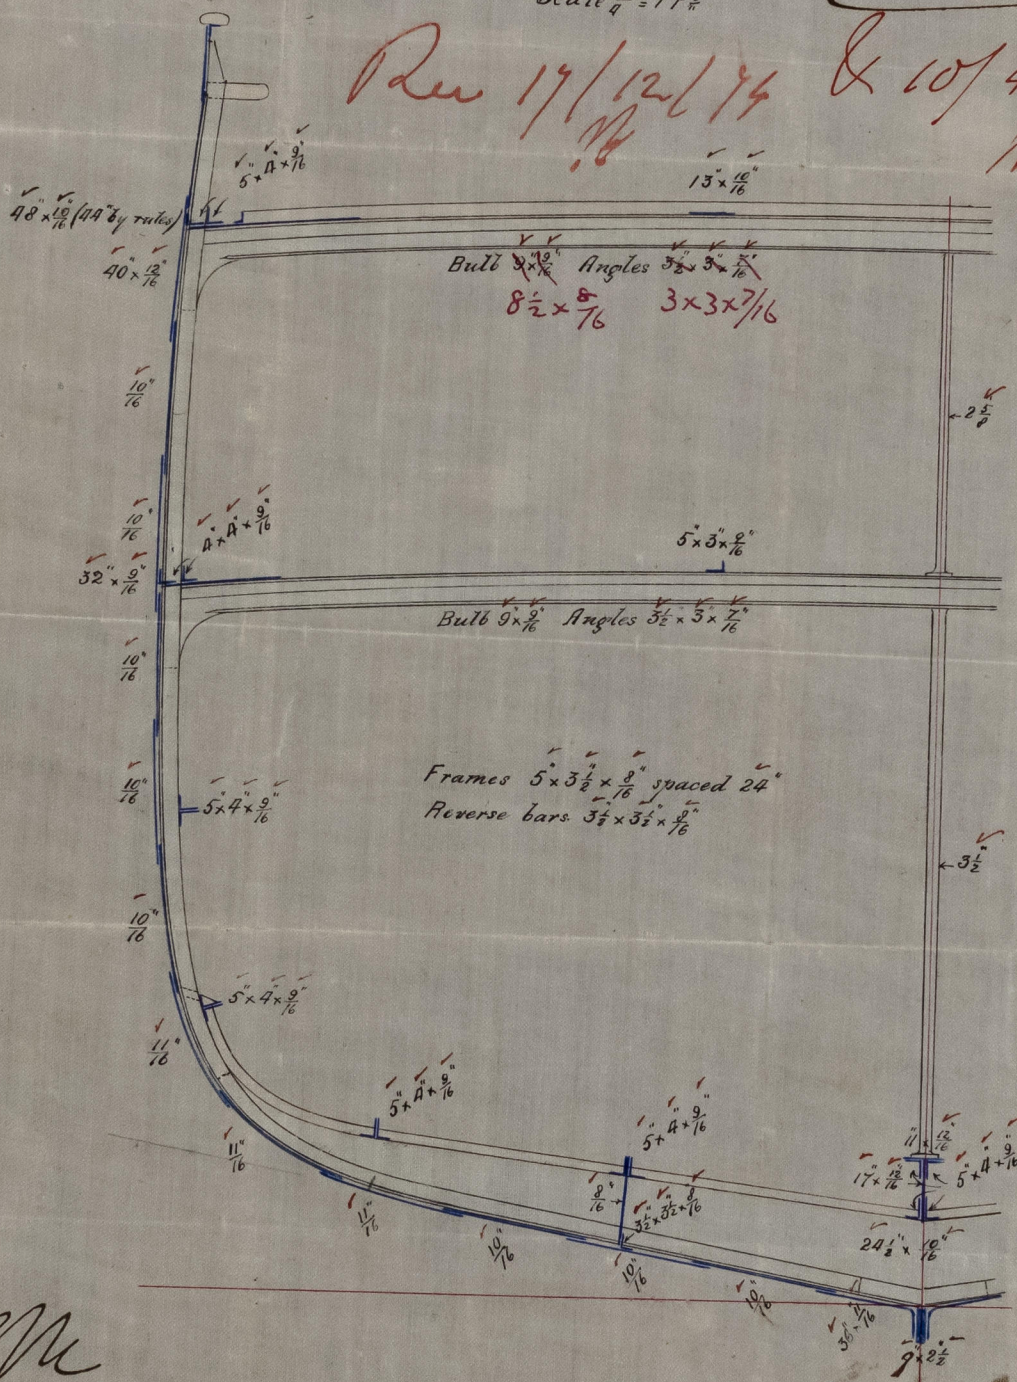 Rec 17/12/74 & 10/4
5" × 4" × 9/16"
13" × 10/16"
48" × 10/16" (44" by rules)
40" × 12/16"
Bulb 9" × 9/16" Angles 3 1/2" × 3" × 7/16"
8 1/2 × 8/16 3 × 3 × 7/16
10/16"
2 5/8"
10/16"
4" × 4" × 9/16"
5" × 3" × 9/16"
32" × 9/16"
Bulb 9" × 9/16" Angles 3 1/2" × 3" × 7/16"
10/16"
Frames 5" × 3 1/2" × 8/16" spaced 24"
Reverse bars 3 1/2" × 3 1/2" × 8/16"
10/16"
5" × 4" × 9/16"
3 1/2"
10/16"
5" × 4" × 9/16"
11/16"
5" × 4" × 9/16"
5" × 4" × 9/16"
11" × 12/16"
11/16"
17" × 12/16"
5" × 4" × 9/16"
8/16"
3 1/2" × 3 1/2" × 8/16"
11/16"
10/16"
24 1/2" × 10/16"
10/16"
10/16"
36" × 11/16"
9" × 2 1/2"